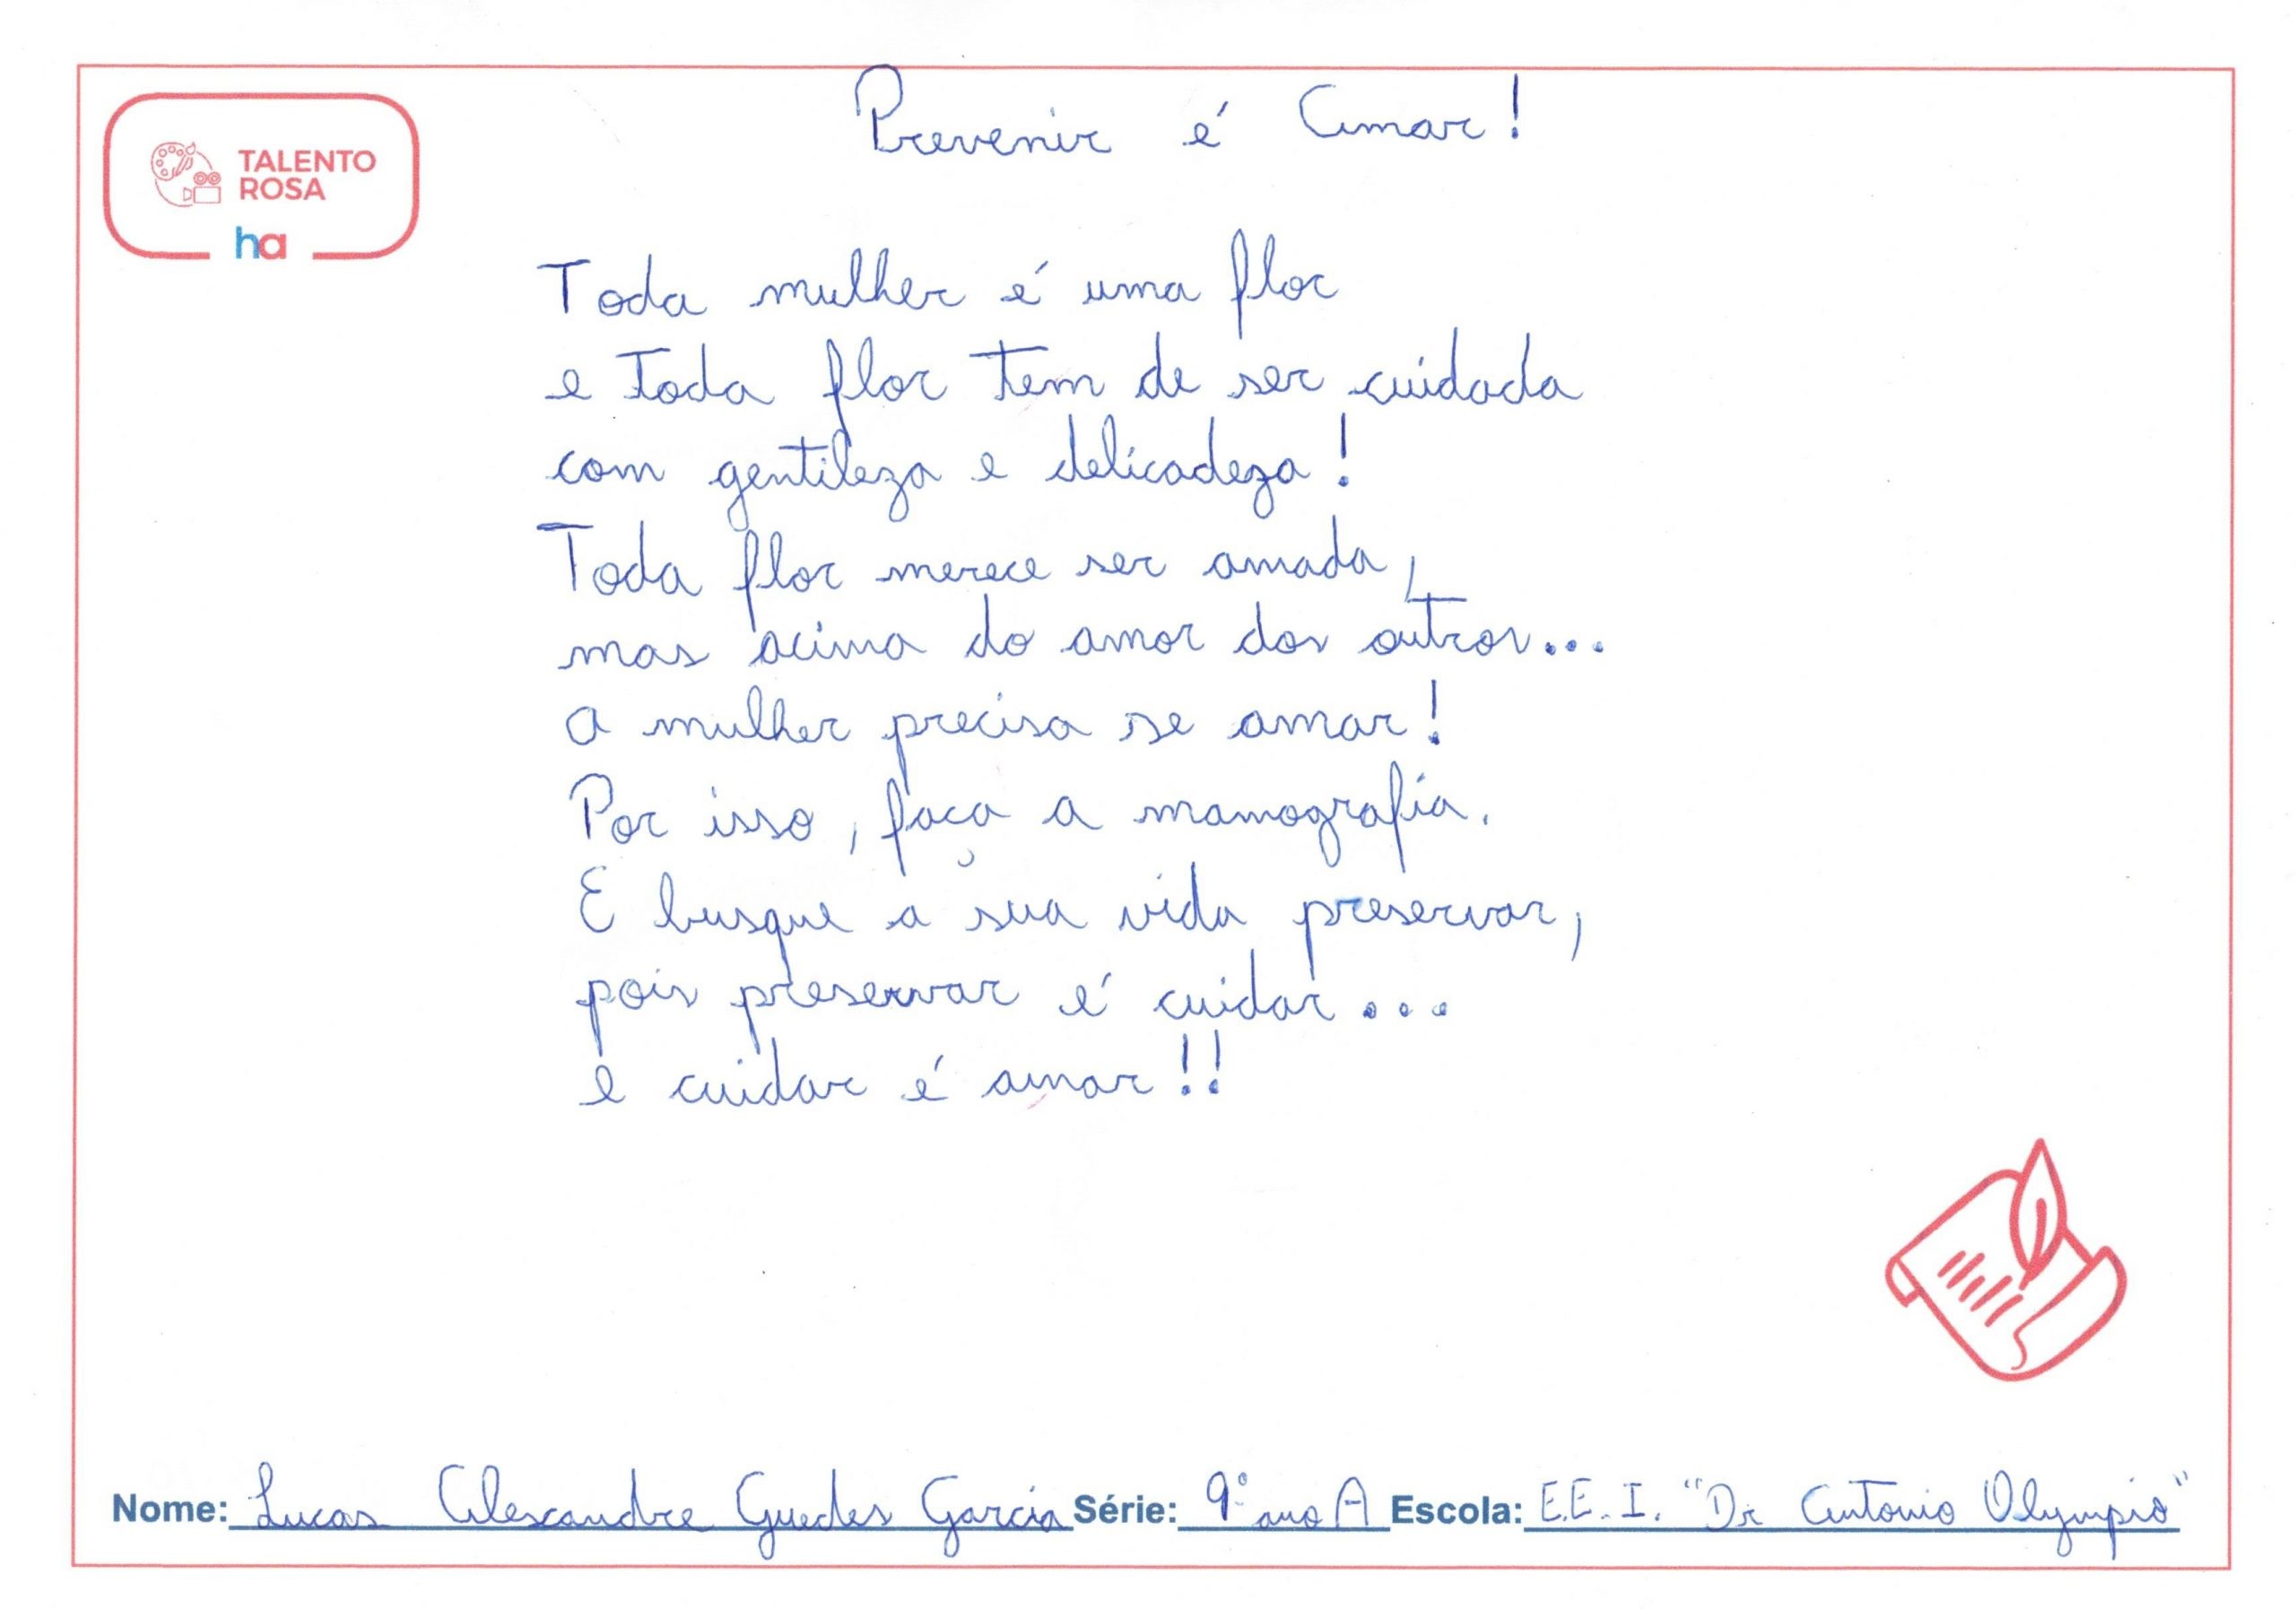 Prevenir é Amar!
TALENTO
ROSA
ha
Toda mulher é uma flor
e toda flor tem de ser cuidada
com gentileza e delicadeza!
Toda flor merece ser amada,
mas acima do amor dos outros...
a mulher precisa se amar!
Por isso, faça a mamografia.
E busque a sua vida preservar,
pois preservar é cuidar...
e cuidar é amar!!
Nome: Lucas Alexandre Guedes Garcia Série: 9º ano A Escola: E.E.I. "Dr Antonio Olympio"